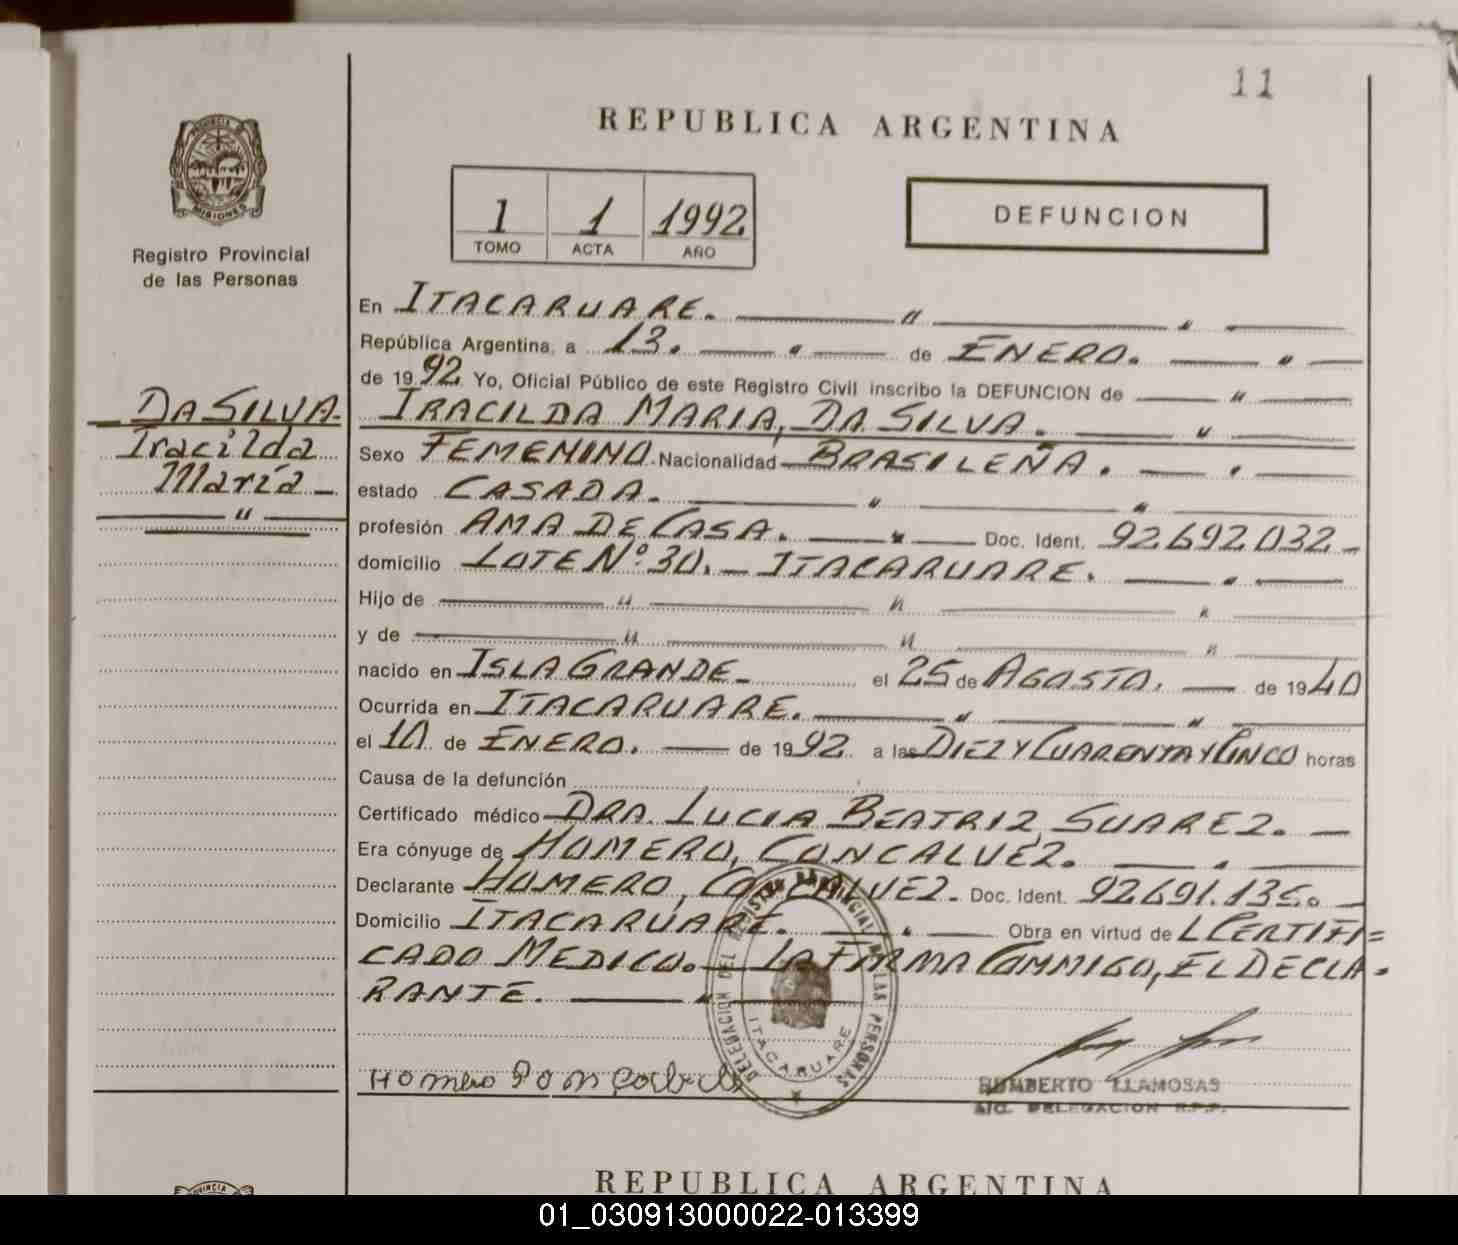 11
REPUBLICA ARGENTINA
PROVINCIA DE MISIONES
Registro Provincial
de las Personas
1 1 1992
TOMO ACTA AÑO
DEFUNCION
En ITACARUARE. — " — " —
República Argentina, a 13. — " — de ENERO. — " —
de 1992 Yo, Oficial Público de este Registro Civil inscribo la DEFUNCION de — " —
DA SILVA.
Iracilda
María —
— " —
IRACILDA MARIA, DA SILVA. — " —
Sexo FEMENINO. Nacionalidad — BRASILEÑA. — " —
estado CASADA. — " — " —
profesión AMA DE CASA. — " — Doc. Ident. 92.692.032 —
domicilio LOTE Nº 30. — ITACARUARE. — " —
Hijo de — " — " — " —
y de — " — " — " —
nacido en ISLA GRANDE — el 25 de AGOSTO. — de 1940
Ocurrida en ITACARUARE. — " — " —
el 10 de ENERO. — de 1992 a las DIEZ Y CUARENTA Y CINCO horas
Causa de la defunción
Certificado médico DRA. LUCIA BEATRIZ SUAREZ. —
Era cónyuge de HOMERO, CONCALVEZ. — " —
Declarante HOMERO, CONCALVEZ. Doc. Ident. 92.691.135. —
Domicilio ITACARUARE. — " — Obra en virtud de L CERTIFI=
CADO MEDICO. — LA FIRMA COMMIGO, EL DECLA-
RANTE. — " —
DELEGACION DEL REGISTRO PROVINCIAL DE LAS PERSONAS
ITACARUARE
Homero
HUMBERTO LLAMOSAS
A/C. DELEGACION R.P.P.
PROVINCIA
REPUBLICA ARGENTINA
01_030913000022-013399